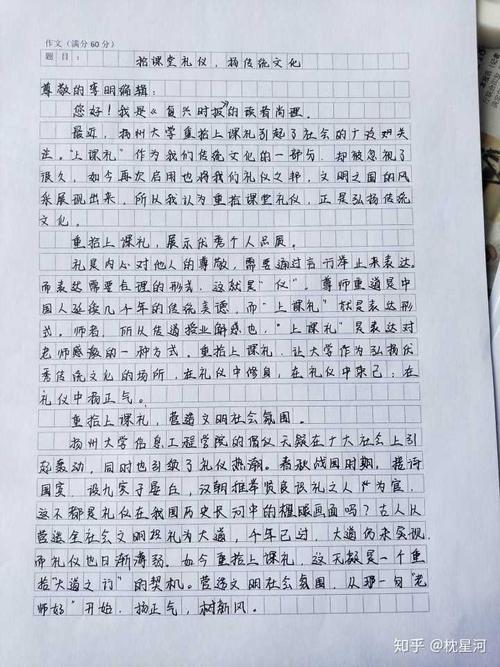 作文（满分60分）
题目： 拾课堂礼仪，扬传统文化
尊敬的李明编辑：
您好！我是《复兴时报》的读者尚理。
最近，扬州大学重拾上课礼引起了社会的广泛如关
注。"上课礼"作为我们传统文化的一部分，却被忽视了
很久，如今再次启用也将我们礼仪之邦，文明之国的风
采展现出来，所以我认为重拾课堂礼仪，正是弘扬传统
文化。
重拾上课礼，展示优秀个人品质。
礼是内心对他人的尊敬，需要通过言行举止来表达。
而表达需要合理的形式，这就是"仪"。尊师重道是中
国人延续几千年的传统美德，而"上课礼"就是表达形
式。师者，所以传道授业解惑也，"上课礼"是表达对
老师感激的一种方式。重拾上课礼，让大学作为弘扬优
秀传统文化的场所，在礼仪中修身，在礼仪中求己；在
礼仪中扬正气。
重拾上课礼，营造文明社会氛围。
扬州大学信息工程学院的倡议无疑在广大社会上引
起轰动，同时也引领了礼仪热潮。春秋战国时期，接待
国宾，设九宾于
，汉朝推举贤良识礼之人
为官，
这不都是礼仪在我国历史长河中的耀眼画面吗？古人从
营造全社会文明投礼为大道，千年已过，大道仍未实现，
而礼仪也日渐薄弱。如今重拾上课礼，这无疑是一个重
拾"大道之行"的契机。营造文明社会氛围，从那一句"老
师好"开始，扬正气，树新风。
知乎 @枕星河